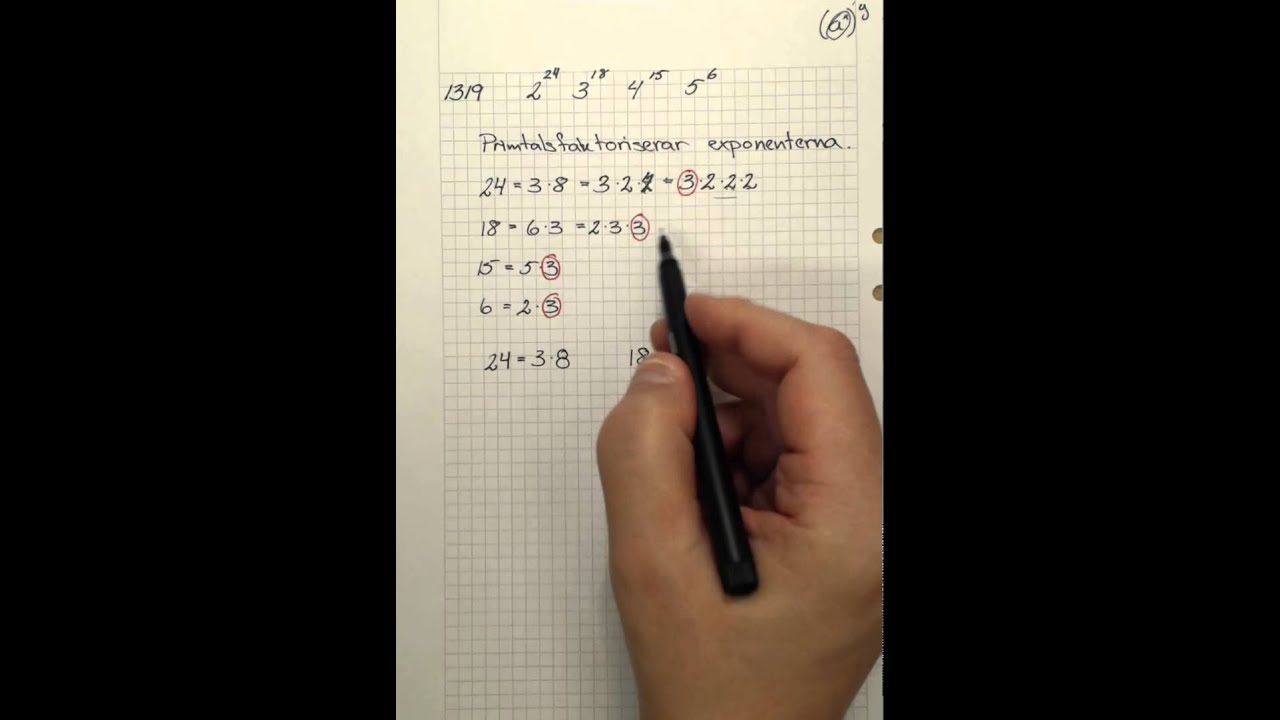 (aˣ)ʸ
1319 2²⁴ 3¹⁸ 4¹⁵ 5⁶
Primtalsfaktoriserar exponenterna.
24 = 3·8 = 3·2·4 = 3·2·2·2
18 = 6·3 = 2·3·3
15 = 5·3
6 = 2·3
24 = 3·8 18